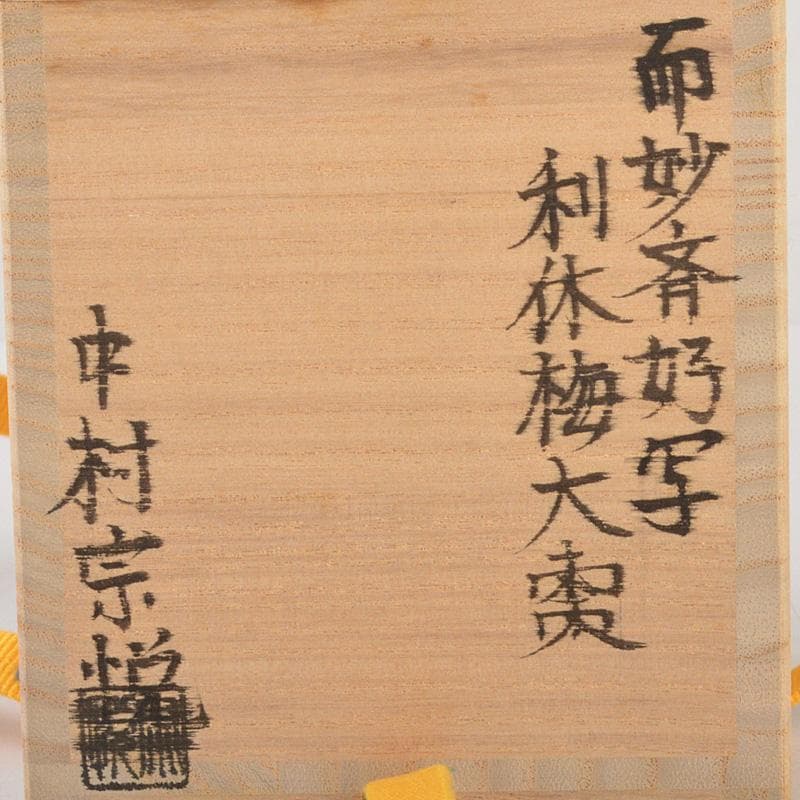 而妙斎好写
利休梅大棗
中村宗悦